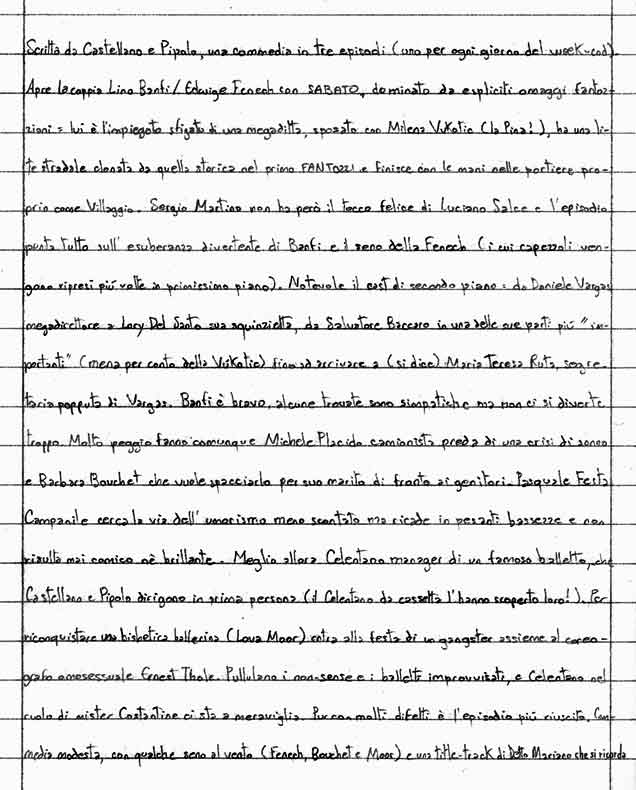 Scritta da Castellano e Pipolo, una commedia in tre episodi (uno per ogni giorno del week-end).
Apre la coppia Lino Banfi/Edwige Fenech con SABATO, dominato da espliciti omaggi fantoz-
ziani = lui è l'impiegato sfigato di una megaditta, sposato con Milena Vukotic (la Pina!), ha una li-
te stradale clonata da quella storica nel primo FANTOZZI e finisce con le mani nelle portiere pro-
prio come Villaggio. Sergio Martino non ha però il tocco felice di Luciano Salce e l'episodio
punta tutto sull' esuberanza divertente di Banfi e il seno della Fenech (i cui capezzoli ven-
gono ripresi più volte in primissimo piano). Notevole il cast di secondo piano = da Daniele Vargas
megadirettore a Lory Del Santo sua squinzietta, da Salvatore Baccaro in una delle sue parti più "im-
portanti" (mena per conto della Vukotic) fino ad arrivare a (si dice) Maria Teresa Ruta, segre-
taria popputa di Vargas. Banfi è bravo, alcune trovate sono simpatiche ma non ci si diverte
troppo. Molto peggio fanno comunque Michele Placido camionista preda di una crisi di sonno
e Barbara Bouchet che vuole spacciarlo per suo marito di fronte ai genitori. Pasquale Festa
Campanile cerca la via dell' umorismo meno scontato ma ricade in pesanti bassezze e non
risulta mai comico nè brillante. Meglio allora Celentano manager di un famoso balletto, che
Castellano e Pipolo dirigono in prima persona (il Celentano da cassetta l'hanno scoperto loro!). Per
riconquistare una bisbetica ballerina (Lova Moor) entra alla festa di un gangster assieme al coreo-
grafo omosessuale Ernest Thole. Pullulano i non-sense e i balletti improvvisati, e Celentano nel
ruolo di mister Costantine ci sta a meraviglia. Pur con molti difetti è l'episodio più riuscito. Com-
media modesta, con qualche seno al vento (Fenech, Bouchet e Moor) e una title-track di Detto Mariano che si ricorda